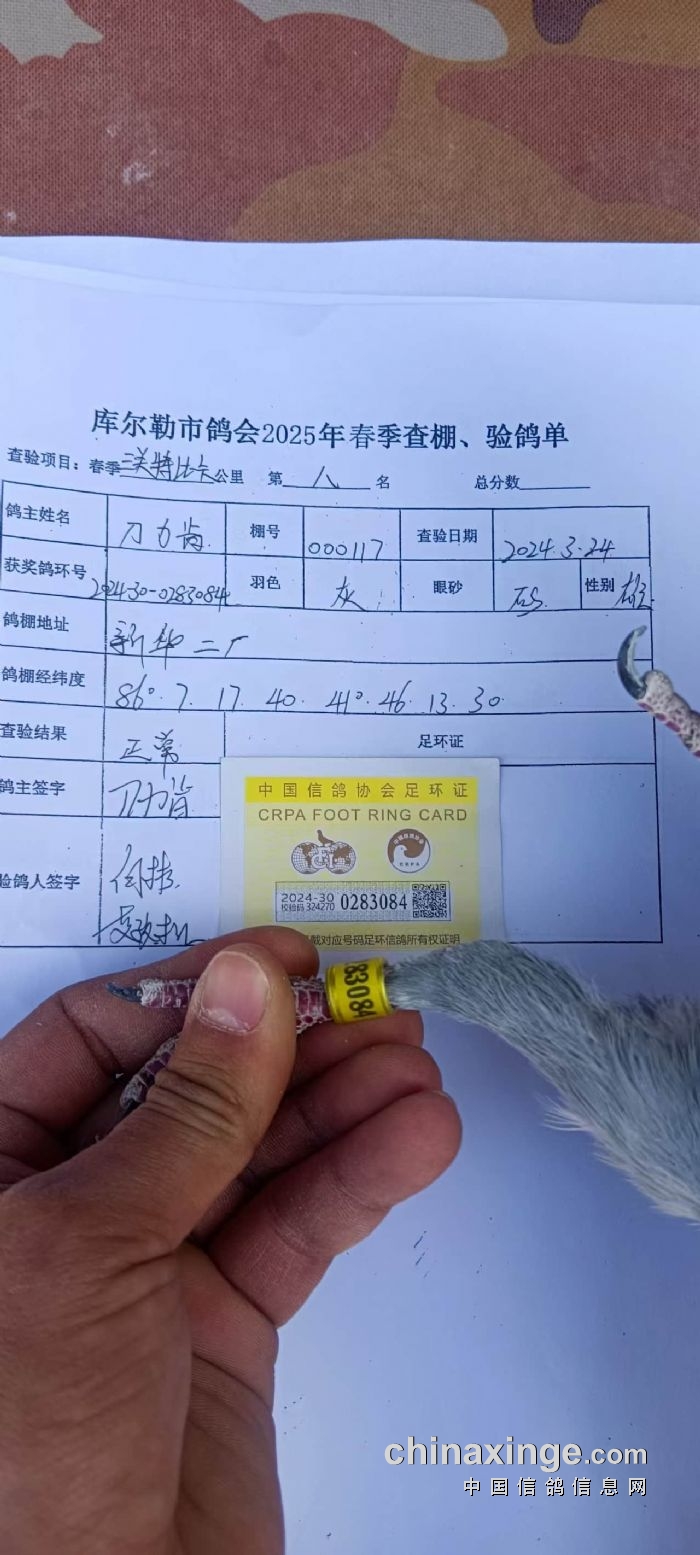 库尔勒市鸽会2025年春季查棚、验鸽单
查验项目：春季三关特比卡公里 第 八 名 总分数
鸽主姓名 刀力肯 棚号 000117 查验日期 2024.3.24
获奖鸽环号 2024-30-0283084 羽色 灰 眼砂 砂 性别 雄
鸽棚地址 新华二厂
鸽棚经纬度 86°.7.17.40. 41°.46.13.30.
查验结果 正常 足环证
鸽主签字 刀力肯
验鸽人签字
中国信鸽协会足环证
CRPA FOOT RING CARD
CRPA
2024-30
校验码 324270 0283084
戴对应号码足环信鸽所有权证明
283084
chinaxinge.com
中国信鸽信息网